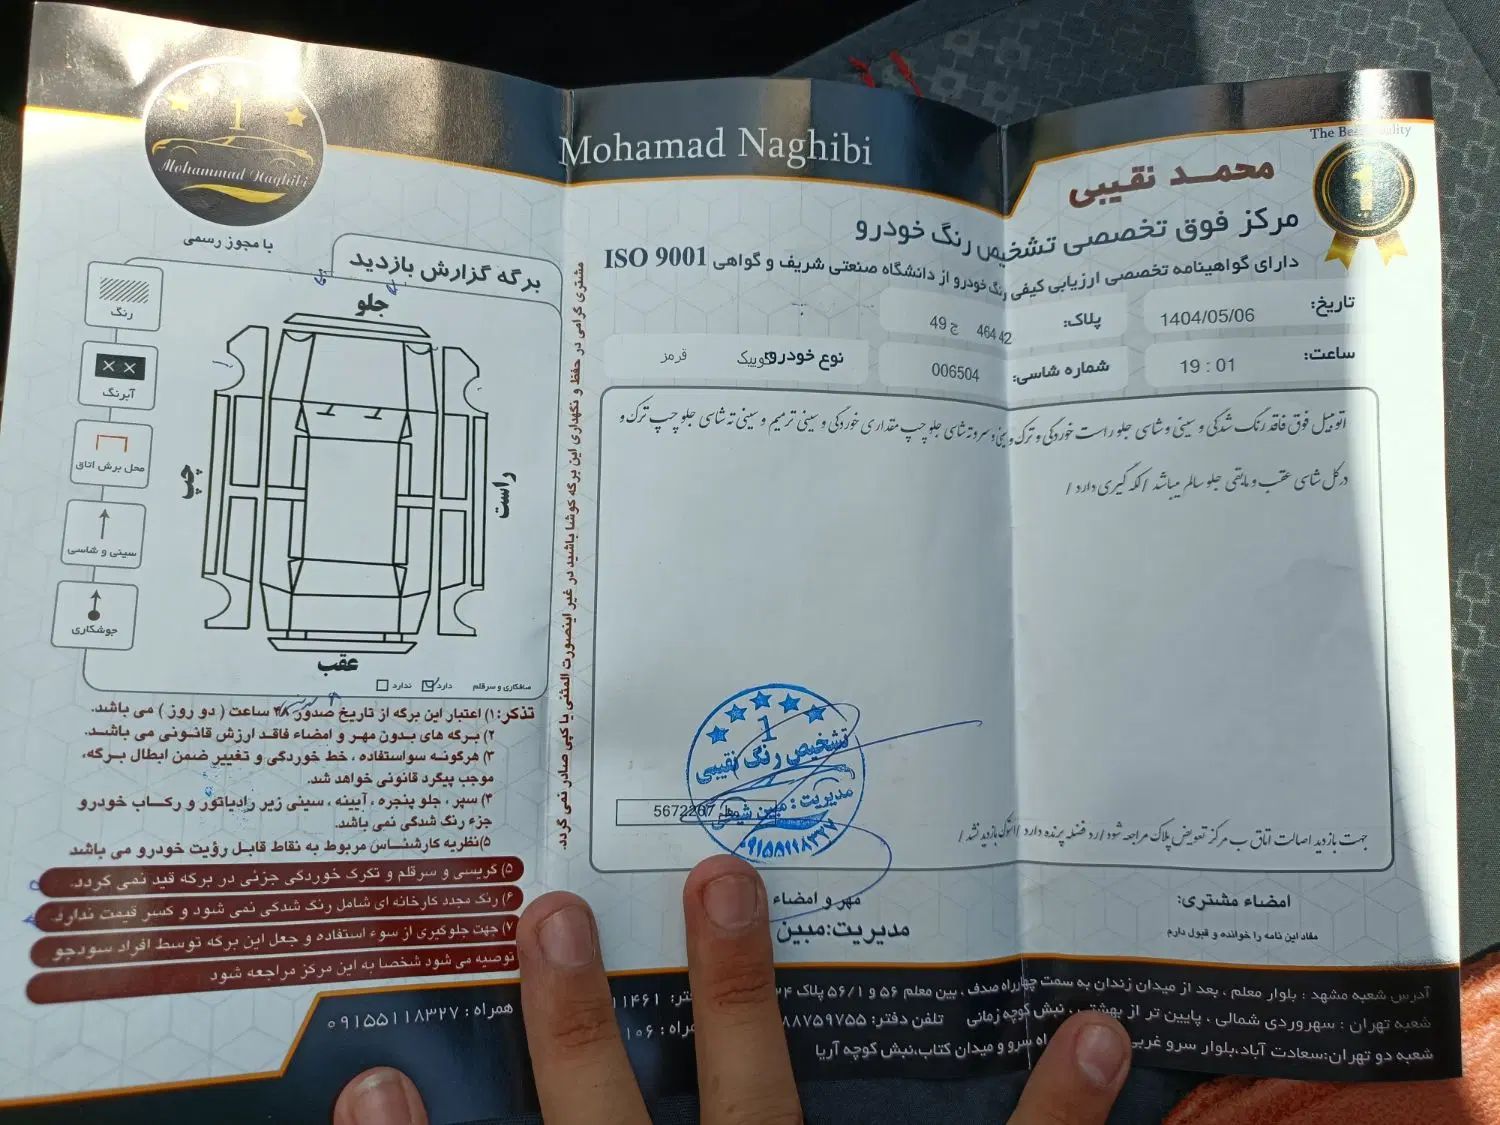 Mohamad Naghibi
The Best Quality
1
محمد نقیبی
مرکز فوق تخصصی تشخیص رنگ خودرو
دارای گواهینامه تخصصی ارزیابی کیفی رنگ خودرو از دانشگاه صنعتی شریف و گواهی ISO 9001
تاریخ: 1404/05/06
پلاک: 42 464 ج 49
ساعت: 19 : 01
شماره شاسی: 006504
نوع خودرو: کوییک قرمز
اتومبیل فوق فاقد رنگ شدگی و سینی و شاسی جلو راست خوردگی و ترک و سرو ته شاسی جلو چپ مقداری خوردگی و سینی ترمیم و سینی ته شاسی جلو چپ ترک و
درکل شاسی عقب و مابقی جلو سالم میباشد / لکه گیری دارد /
1
تشخیص رنگ نقیبی
مدیریت: مبین
۰۹۱۵۵۱۱۸۳۲۷
5672207
جهت بازدید اصالت اتاق ب مرکز تعویض پلاک مراجعه شود /
امضاء مشتری:
مفاد این نامه را خوانده و قبول دارم
مهر و امضاء
مدیریت: مبین
آدرس شعبه مشهد : بلوار معلم ، بعد از میدان زندان به سمت چهارراه صدف ، بین معلم ۵۶ و ۵۶/۱ پلاک ۲۴
شعبه تهران : سهروردی شمالی ، پایین تر از بهشتی ، نبش کوچه زمانی تلفن دفتر: ۸۸۷۵۹۷۵۵
شعبه دو تهران:سعادت آباد،بلوار سرو غربی سرو و میدان کتاب،نبش کوچه آریا
همراه : ۰۹۱۵۵۱۱۸۳۲۷
مشتری گرامی در حفظ و نگهداری این برگه کوشا باشید در غیر اینصورت المثنی یا کپی صادر نمی گردد.
1
Mohammad Naghibi
با مجوز رسمی
برگه گزارش بازدید
رنگ
آبرنگ
محل برش اتاق
سینی و شاسی
جوشکاری
جلو
چپ
راست
عقب
صافکاری و سرقلم دارد ندارد
تذکر: ۱) اعتبار این برگه از تاریخ صدور ۴۸ ساعت ( دو روز ) می باشد.
۲) برگه های بدون مهر و امضاء فاقد ارزش قانونی می باشد.
۳) هرگونه سواستفاده ، خط خوردگی و تغییر ضمن ابطال برگه،
موجب پیگرد قانونی خواهد شد.
۴) سپر ، جلو پنجره ، آیینه ، سینی زیر رادیاتور و رکاب خودرو
جزء رنگ شدگی نمی باشد.
۵)نظریه کارشناس مربوط به نقاط قابل رؤیت خودرو می باشد
۵) گریسی و سرقلم و تکرک خوردگی جزئی در برگه قید نمی گردد.
۶) رنگ مجدد کارخانه ای شامل رنگ شدگی نمی شود و کسر قیمت ندارد.
۷) جهت جلوگیری از سوء استفاده و جعل این برگه توسط افراد سودجو
توصیه می شود شخصا به این مرکز مراجعه شود